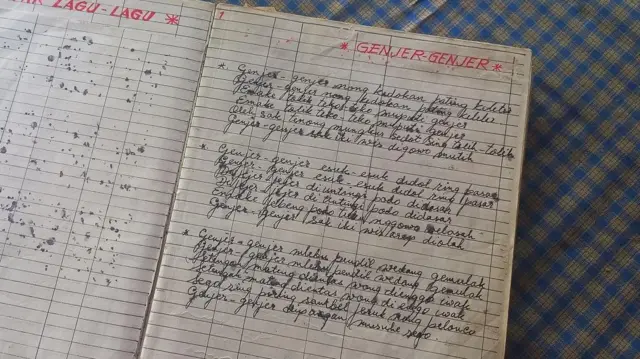 LAGU-LAGU *
1
* GENJER-GENJER *
* Genjer-genjer nong kedokan pating keleler
Genjer-genjer nong kedokan pating keleler
Emake teko-teko
Emake teko-teko genjer
Oleh sak tenong mungkur sing tolih-tolih
Genjer-genjer sak iki wis digowo mulih
* Genjer-genjer esuk-esuk didol ring pasar
Genjer-genjer esuk-esuk didol ring pasar
didasar
podo didasar
Emake jebeng podo tuku nggowo
Genjer-genjer sak iki wis arep diolah
* Genjer-genjer mlebu pendil wedang gemulak
Genjer-genjer mlebu pendil wedang gemulak
Setengah mateng dientas wong dienggo iwak
Setengah mateng dientas wong dienggo iwak
Sego sambel jeruk pelonco
Genjer-genjer musuhe sego